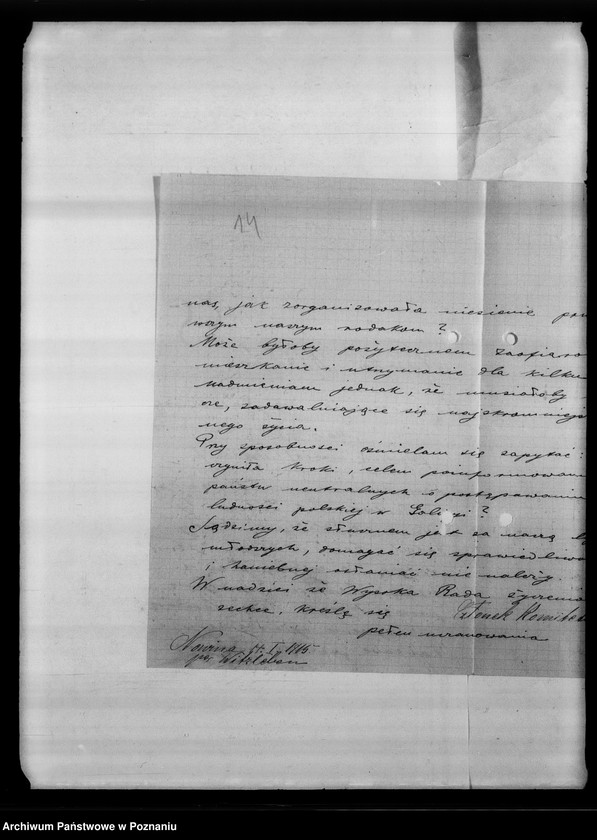 14
nas, jak zorganizowała niesienie pom
naszym rodakom?
Może byłoby pożytecznem zaofiaro
mieszkanie i utrzymanie dla kilku
nadmieniam jednak, że musiałoby
zadawalniające się najskromniej
nego życia.
Przy sposobności ośmielam się zapytać:
czyniła kroki, celem poinformowani
państw neutralnych o postępowaniu
ludności polskiej w Galicyi?
Sądzimy, że słusznem jest za naszą
młodszych, domagać się sprawiedliwo
i haniebnej osłaniać nie należy.
W nadziei że Wysoka Rada życzenio
zechce, kreślę się
Członek Komitet
pełen uszanowania
I. 1915
p. Witzleben
Archiwum Państwowe w Poznaniu